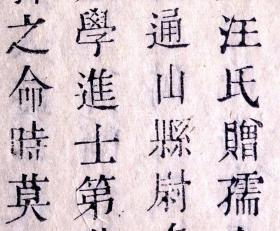 汪氏贈孺
通山縣尉
學進士第
之命時莫